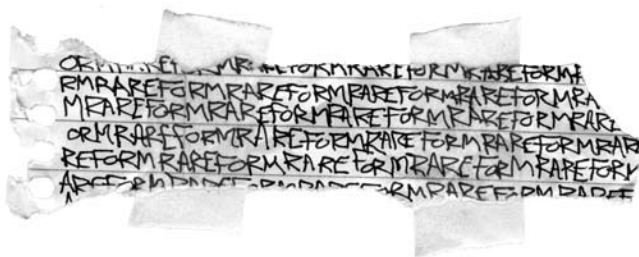 ORMRAREFORMRAREFORMRAREFORMRAREFORMR
RMRAREFORMRAREFORMRAREFORMRAREFORMRA
MRAREFORMRAREFORMRAREFORMRAREFORMRARE
ORMRAREFORMRAREFORMRAREFORMRAREFORMRAR
REFORMRAREFORMRAREFORMRAREFORMRAREFORM
AREFORMRAREFORMRAREFORMRAREFORMRAREF